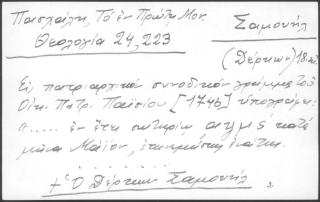 Πασχάλη, Τὸ ἐν Πρώτῃ Μον.
Σαμουὴλ
Θεολογία 24, 223
(Δέρκων) 18. αἰ.
Εἰς πατριαρχικὸν συνοδικὸν γράμμα τοῦ
Οἰκ. Πατρ. Παϊσίου [1746] ὑπογράφει:
"..... ἐν ἔτει σωτηρίῳ αψμς´ κατὰ
μῆνα Μάϊον, ἐπινεμήσεως ἐνάτης.
+ Ὁ Δέρκων Σαμουὴλ